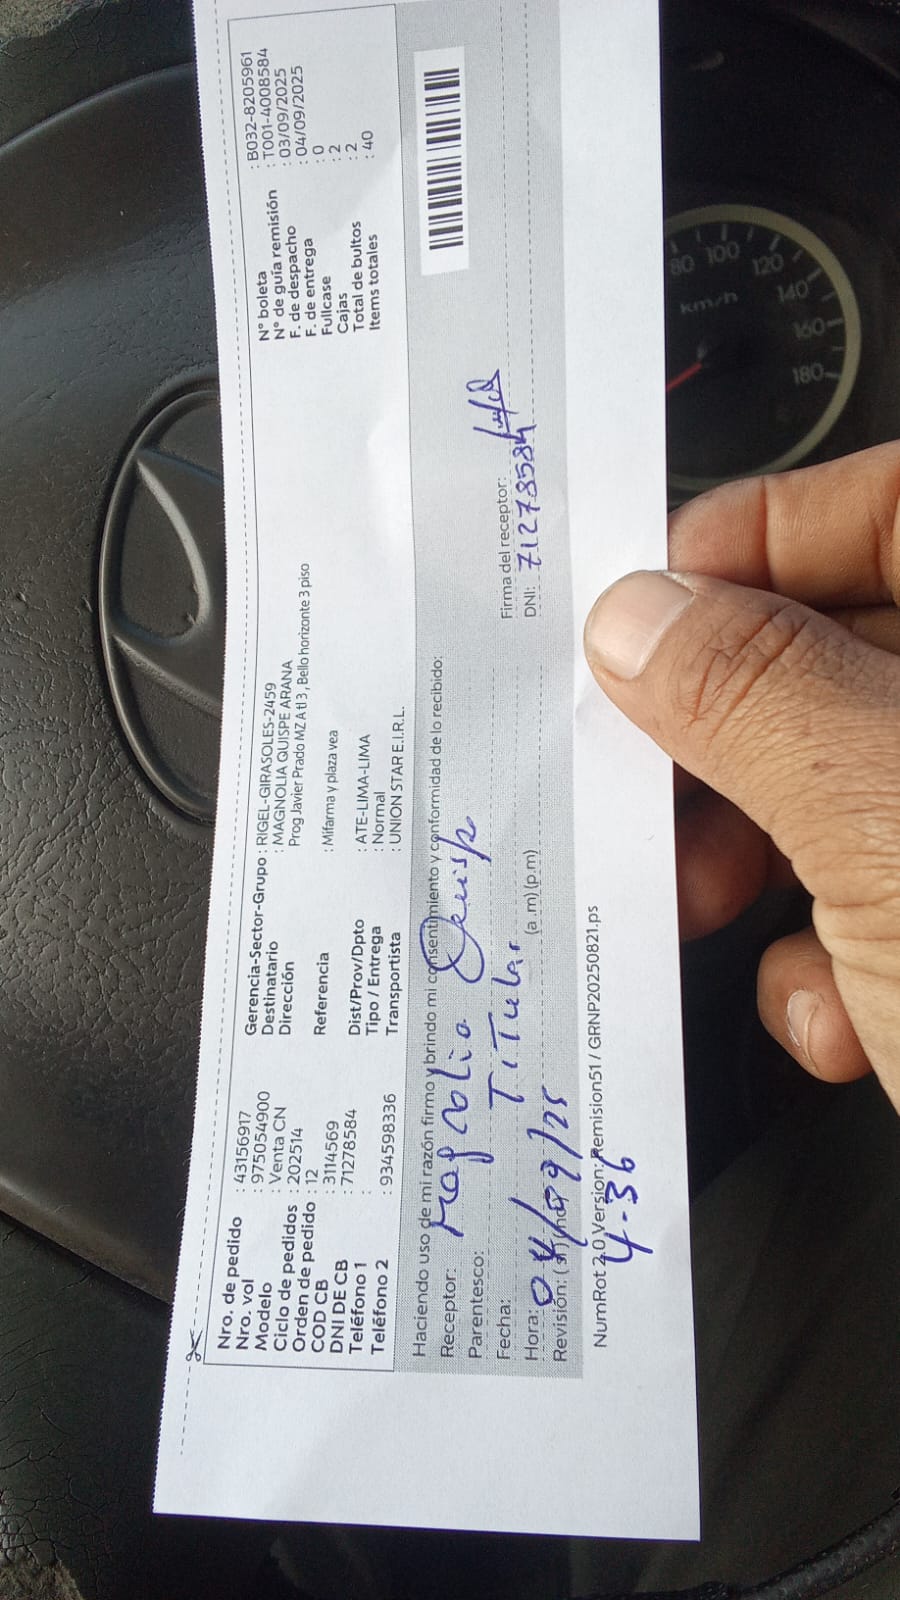 Nro. de pedido : 43156917
Nro. vol : 975054900
Modelo : Venta CN
Ciclo de pedidos : 202514
Orden de pedido : 12
COD CB : 3114569
DNI DE CB : 71278584
Teléfono 1 :
Teléfono 2 : 934598336
Gerencia-Sector-Grupo : RIGEL-GIRASOLES-2459
Destinatario : MAGNOLIA QUISPE ARANA
Dirección Prog Javier Prado MZ A tl 3 , Bello horizonte 3 piso
Referencia : Mifarma y plaza vea
Dist/Prov/Dpto : ATE-LIMA-LIMA
Tipo / Entrega : Normal
Transportista : UNION STAR E.I.R.L.
N° boleta : B032-8205961
N° de guía remisión : T001-4008584
F. de despacho : 03/09/2025
F. de entrega : 04/09/2025
Fullcase : 0
Cajas : 2
Total de bultos : 2
Items totales : 40
Haciendo uso de mi razón firmo y brindo mi consentimiento y conformidad de lo recibido:
Receptor: Magnolia Quisp
Parentesco: Titular
Firma del receptor:
Fecha: 04/09/25
DNI: 71278584
Hora: (a.m) (p.m)
Revisión:
4-36
NumRot 2.0 Version: Remision51 / GRNP20250821.ps
80 100 120 140 160 180
km/h